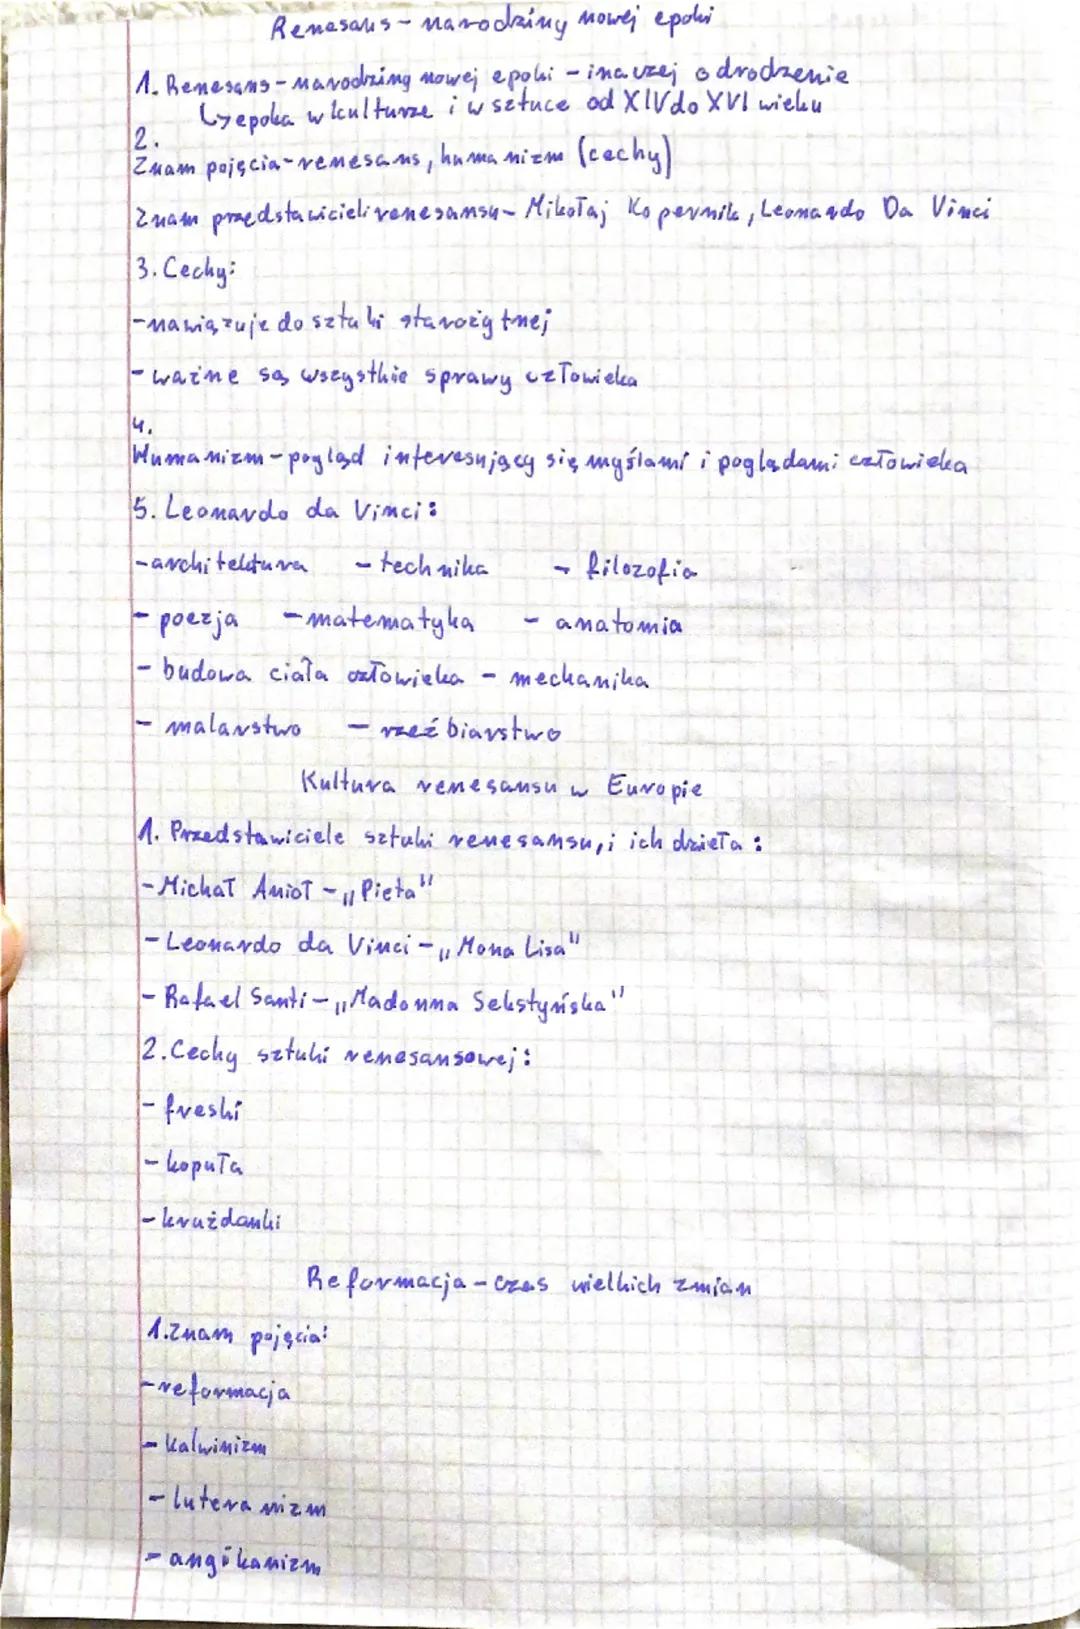 Renesans - narodziny nowej epoki
1. Renesans - narodziny nowej epoki - inaczej odrodzenie
↳ epoka w kulturze i w sztuce od XIV do XVI wieku
2.
Znam pojęcia - renesans, humanizm (cechy)
Znam przedstawicieli renesansu - Mikołaj Kopernik, Leonardo Da Vinci
3. Cechy:
- nawiązuje do sztuki starożytnej
- ważne są wszystkie sprawy człowieka
4.
Humanizm - pogląd interesujący się myślami i poglądami człowieka
5. Leonardo da Vinci:
- architektura - technika - filozofia
- poezja - matematyka - anatomia
- budowa ciała człowieka - mechanika
- malarstwo - rzeźbiarstwo
Kultura renesansu w Europie
1. Przedstawiciele sztuki renesansu, i ich dzieła:
- Michał Anioł - „Pieta"
- Leonardo da Vinci - „Mona Lisa"
- Rafael Santi - „Madonna Sekstyńska"
2. Cechy sztuki renesansowej:
- freski
- kopuła
- krużdanki
Reformacja - czas wielkich zmian
1. Znam pojęcia:
- reformacja
- kalwinizm
- luteranizm
- angikanizm